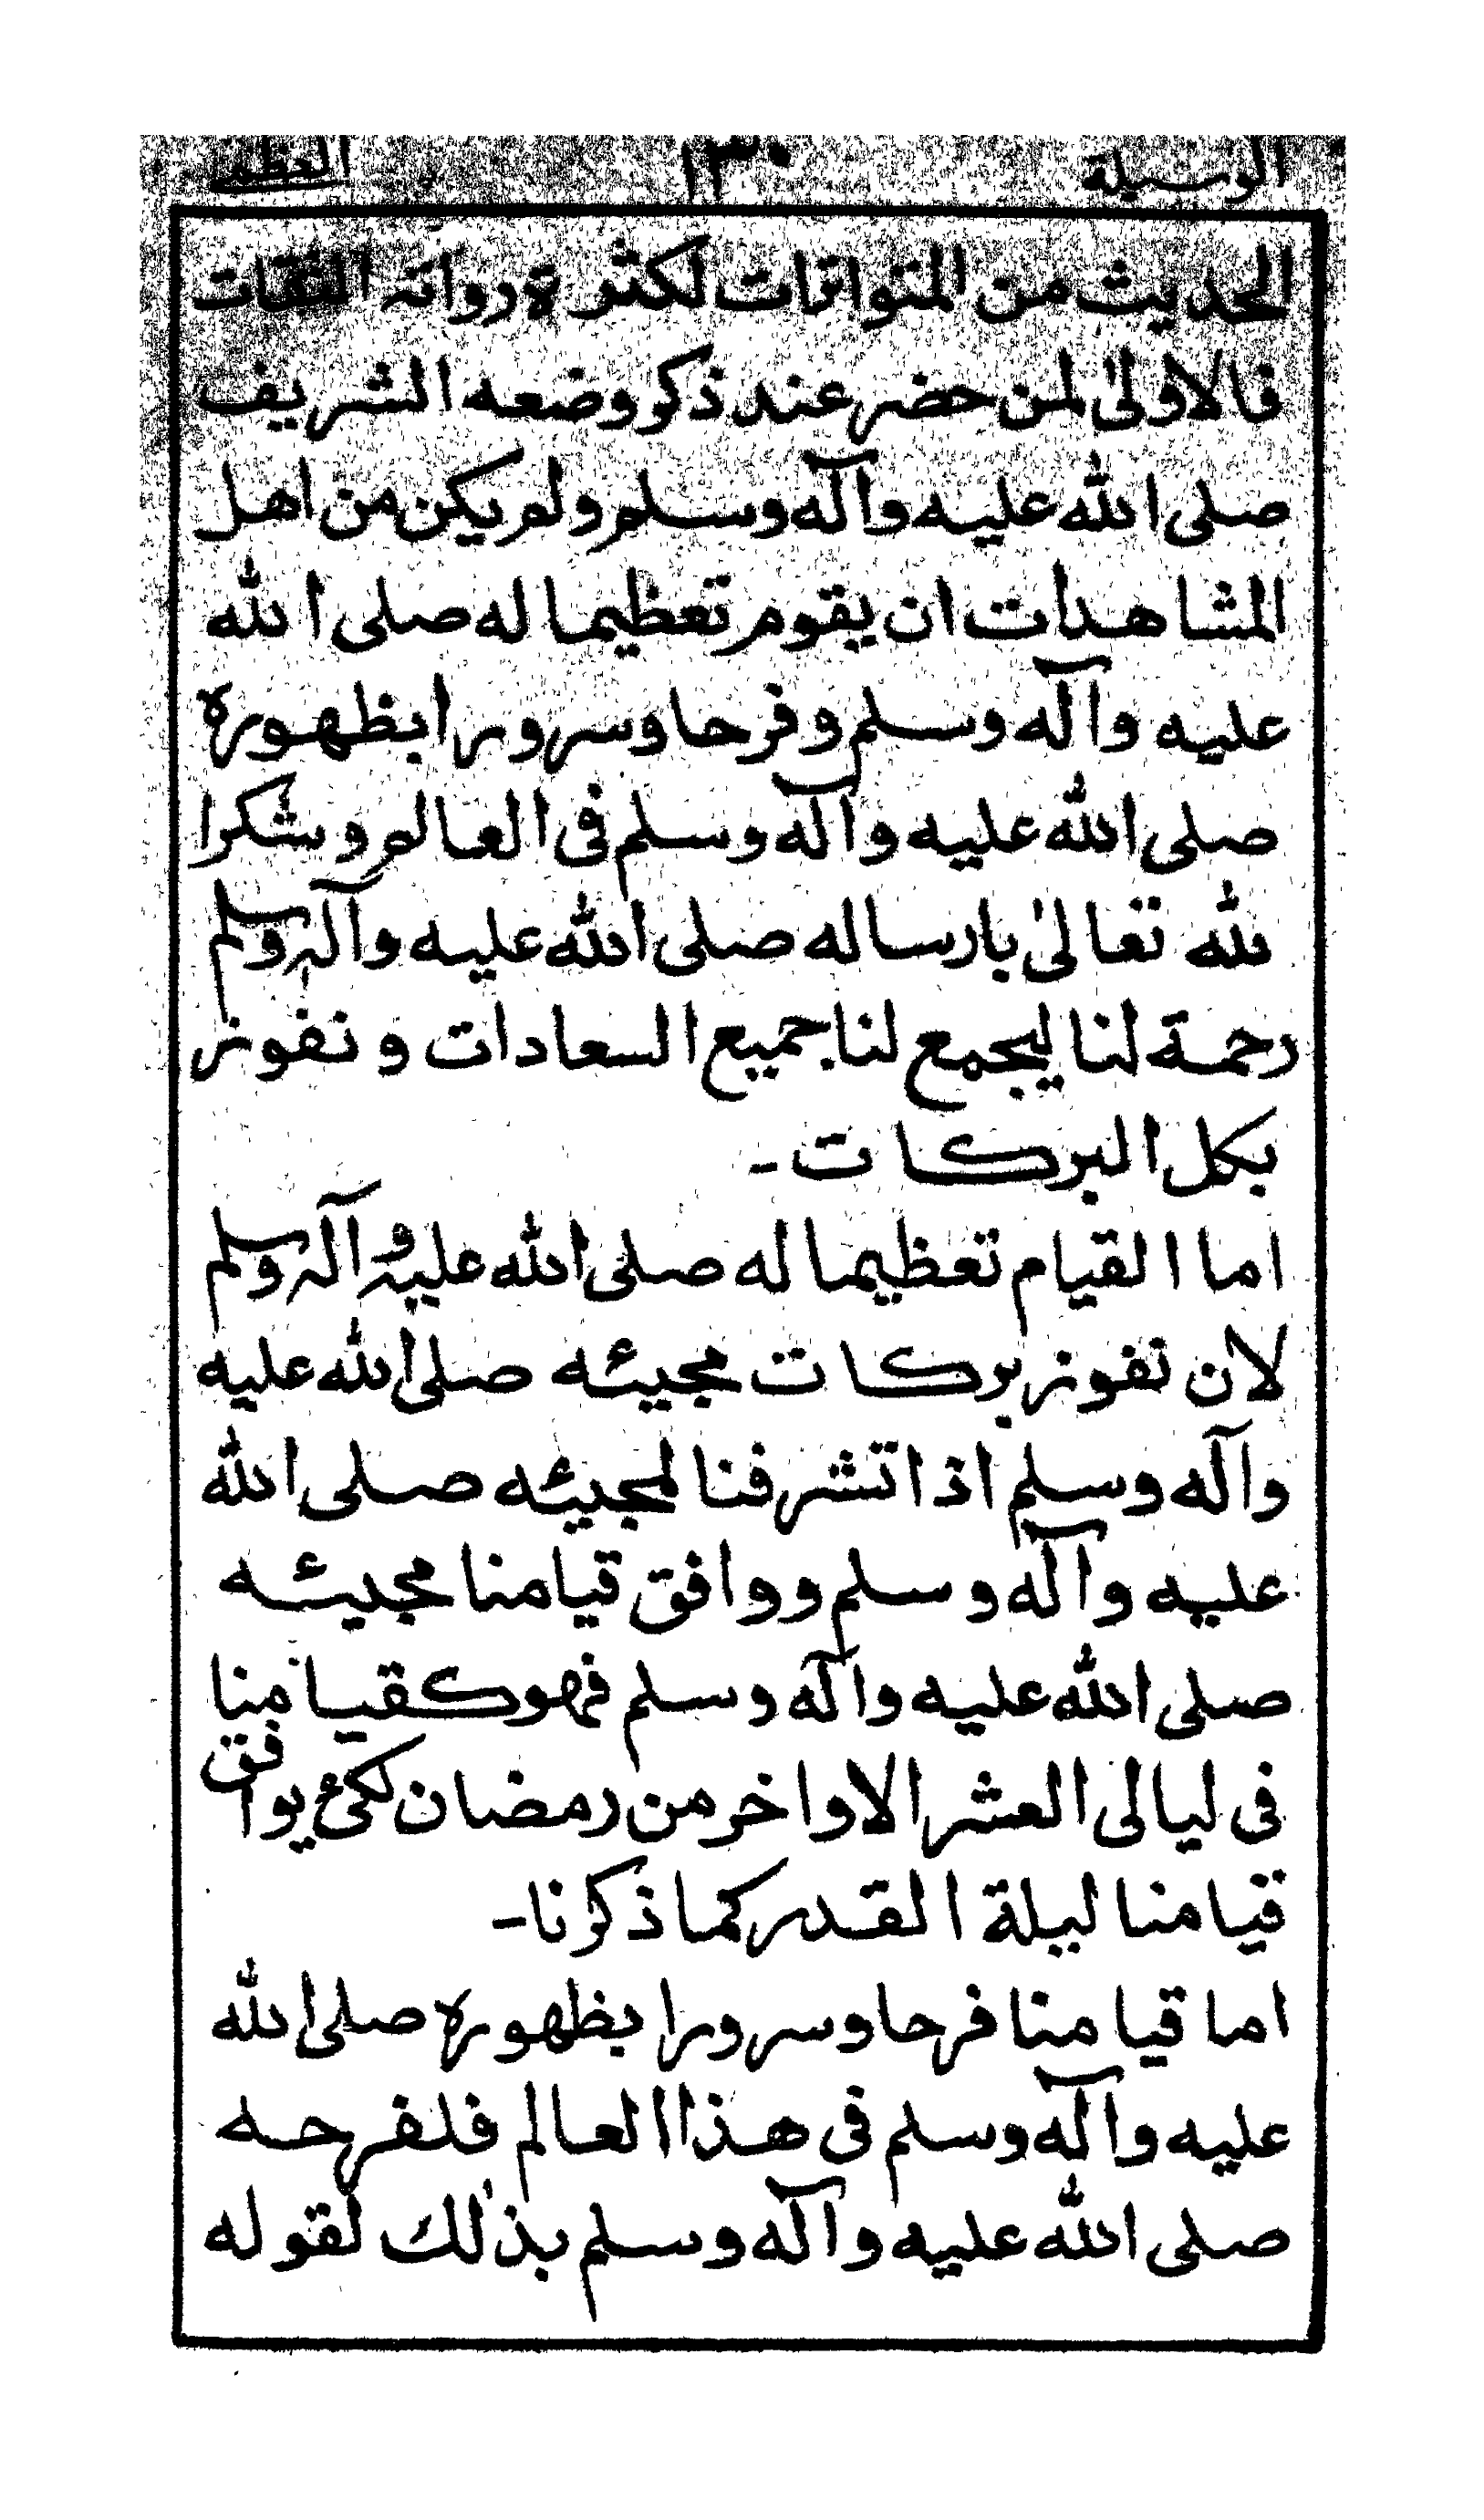 الوسيلة ١٣٠ العظمى
الحديث من المتواترات لكثرة رواته الثقات
فالاولىٰ لمن حضر عند ذكر وضعه الشريف
صلى الله عليه وآله وسلم ولم يكن من اهل
المشاهدات ان يقوم تعظيما له صلى الله
عليه وآله وسلم وفرحا وسرورا بظهوره
صلى الله عليه وآله وسلم فى العالم وشكرا
لله تعالىٰ بارساله صلى الله عليه وآله وسلم
رحمة لنا ليجمع لنا جميع السعادات و نفوز
بكل البركات -
اما القيام تعظيما له صلى الله عليه وآله وسلم
لان نفوز بركات مجيئه صلى الله عليه
وآله وسلم اذا تشرفنا لمجيئه صلى الله
عليه وآله وسلم ووافق قيامنا مجيئه
صلى الله عليه وآله وسلم فهو كقيامنا
فى ليالى العشر الاواخر من رمضان لكئ يوافق
قيامنا ليلة القدر كما ذكرنا -
اما قيامنا فرحا وسرورا بظهوره صلى الله
عليه وآله وسلم فى هذا العالم فلفرحه
صلى الله عليه وآله وسلم بذٰلك لقوله